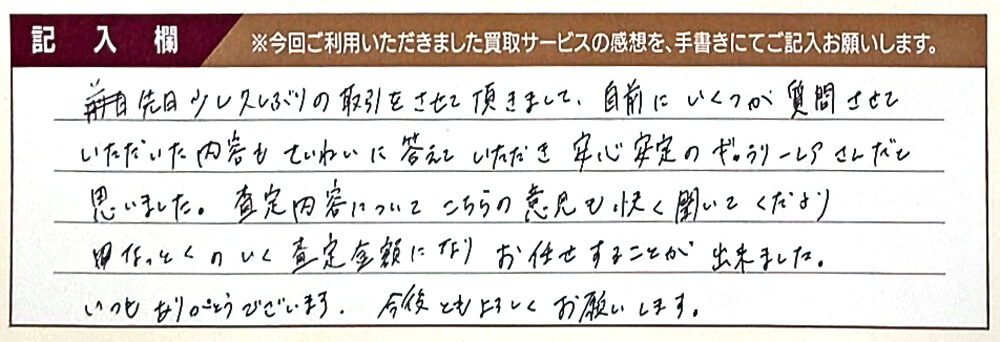 記入欄 ※今回ご利用いただきました買取サービスの感想を、手書きにてご記入お願いします。
先日少し久しぶりの取引をさせて頂きまして、自前にいくつか質問させて
いただいた内容もていねいに答えていただき安心安定のギャラリーレアさんだと
思いました。査定内容についてこちらの意見も快く聞いてくださり
なっとくのいく査定金額になりお任せすることが出来ました。
いつもありがとうございます。今後ともよろしくお願いします。